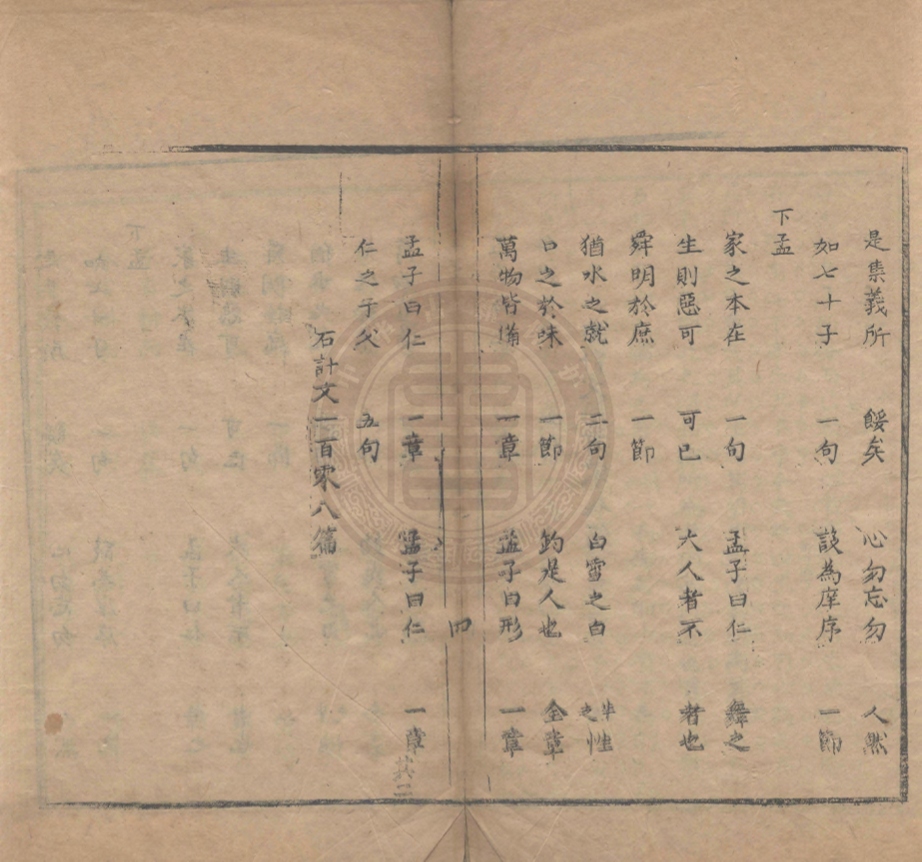 是集義所 餒矣 心勿忘勿 人然
如七十子 一句 設為庠序 一節
下孟
家之本在 一句 孟子曰仁 舜之
生則惡可 可已 大人者不 者也
舜明於庶 一節
猶水之就 二句 白雪之白 牛之性
口之於味 一節 鈞是人也 全章
萬物皆備 一章 孟子曰形 一章
四
孟子曰仁 一章 孟子曰仁 一章 其二
仁之于父 五句
石計文一百零八篇